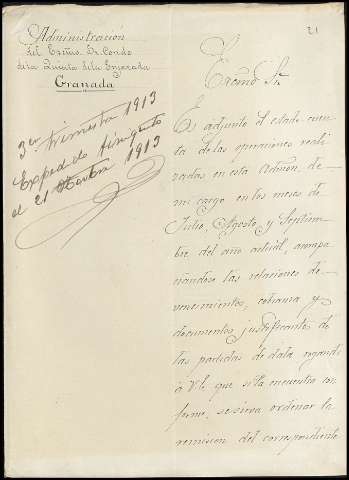 21
Administración
del Excmo. Sr. Conde
de la Quinta de la Enjarada
Granada
3er trimestre 1913
Expedido finiquito
el 21 Octubre 1913
Excmo Sr.
Es adjunto el estado cuenta
de las operaciones reali
zadas en esta Admon. de
mi cargo en los meses de
Julio, Agosto y Septiem-
bre del año actual, acompa
ñandose las relaciones de
vencimientos, cobranza y
documentos justificantes de
las partidas de data, rogando
á V.E. que si la encuentra con
forme, se sirva ordenar la
remision del correspondiente